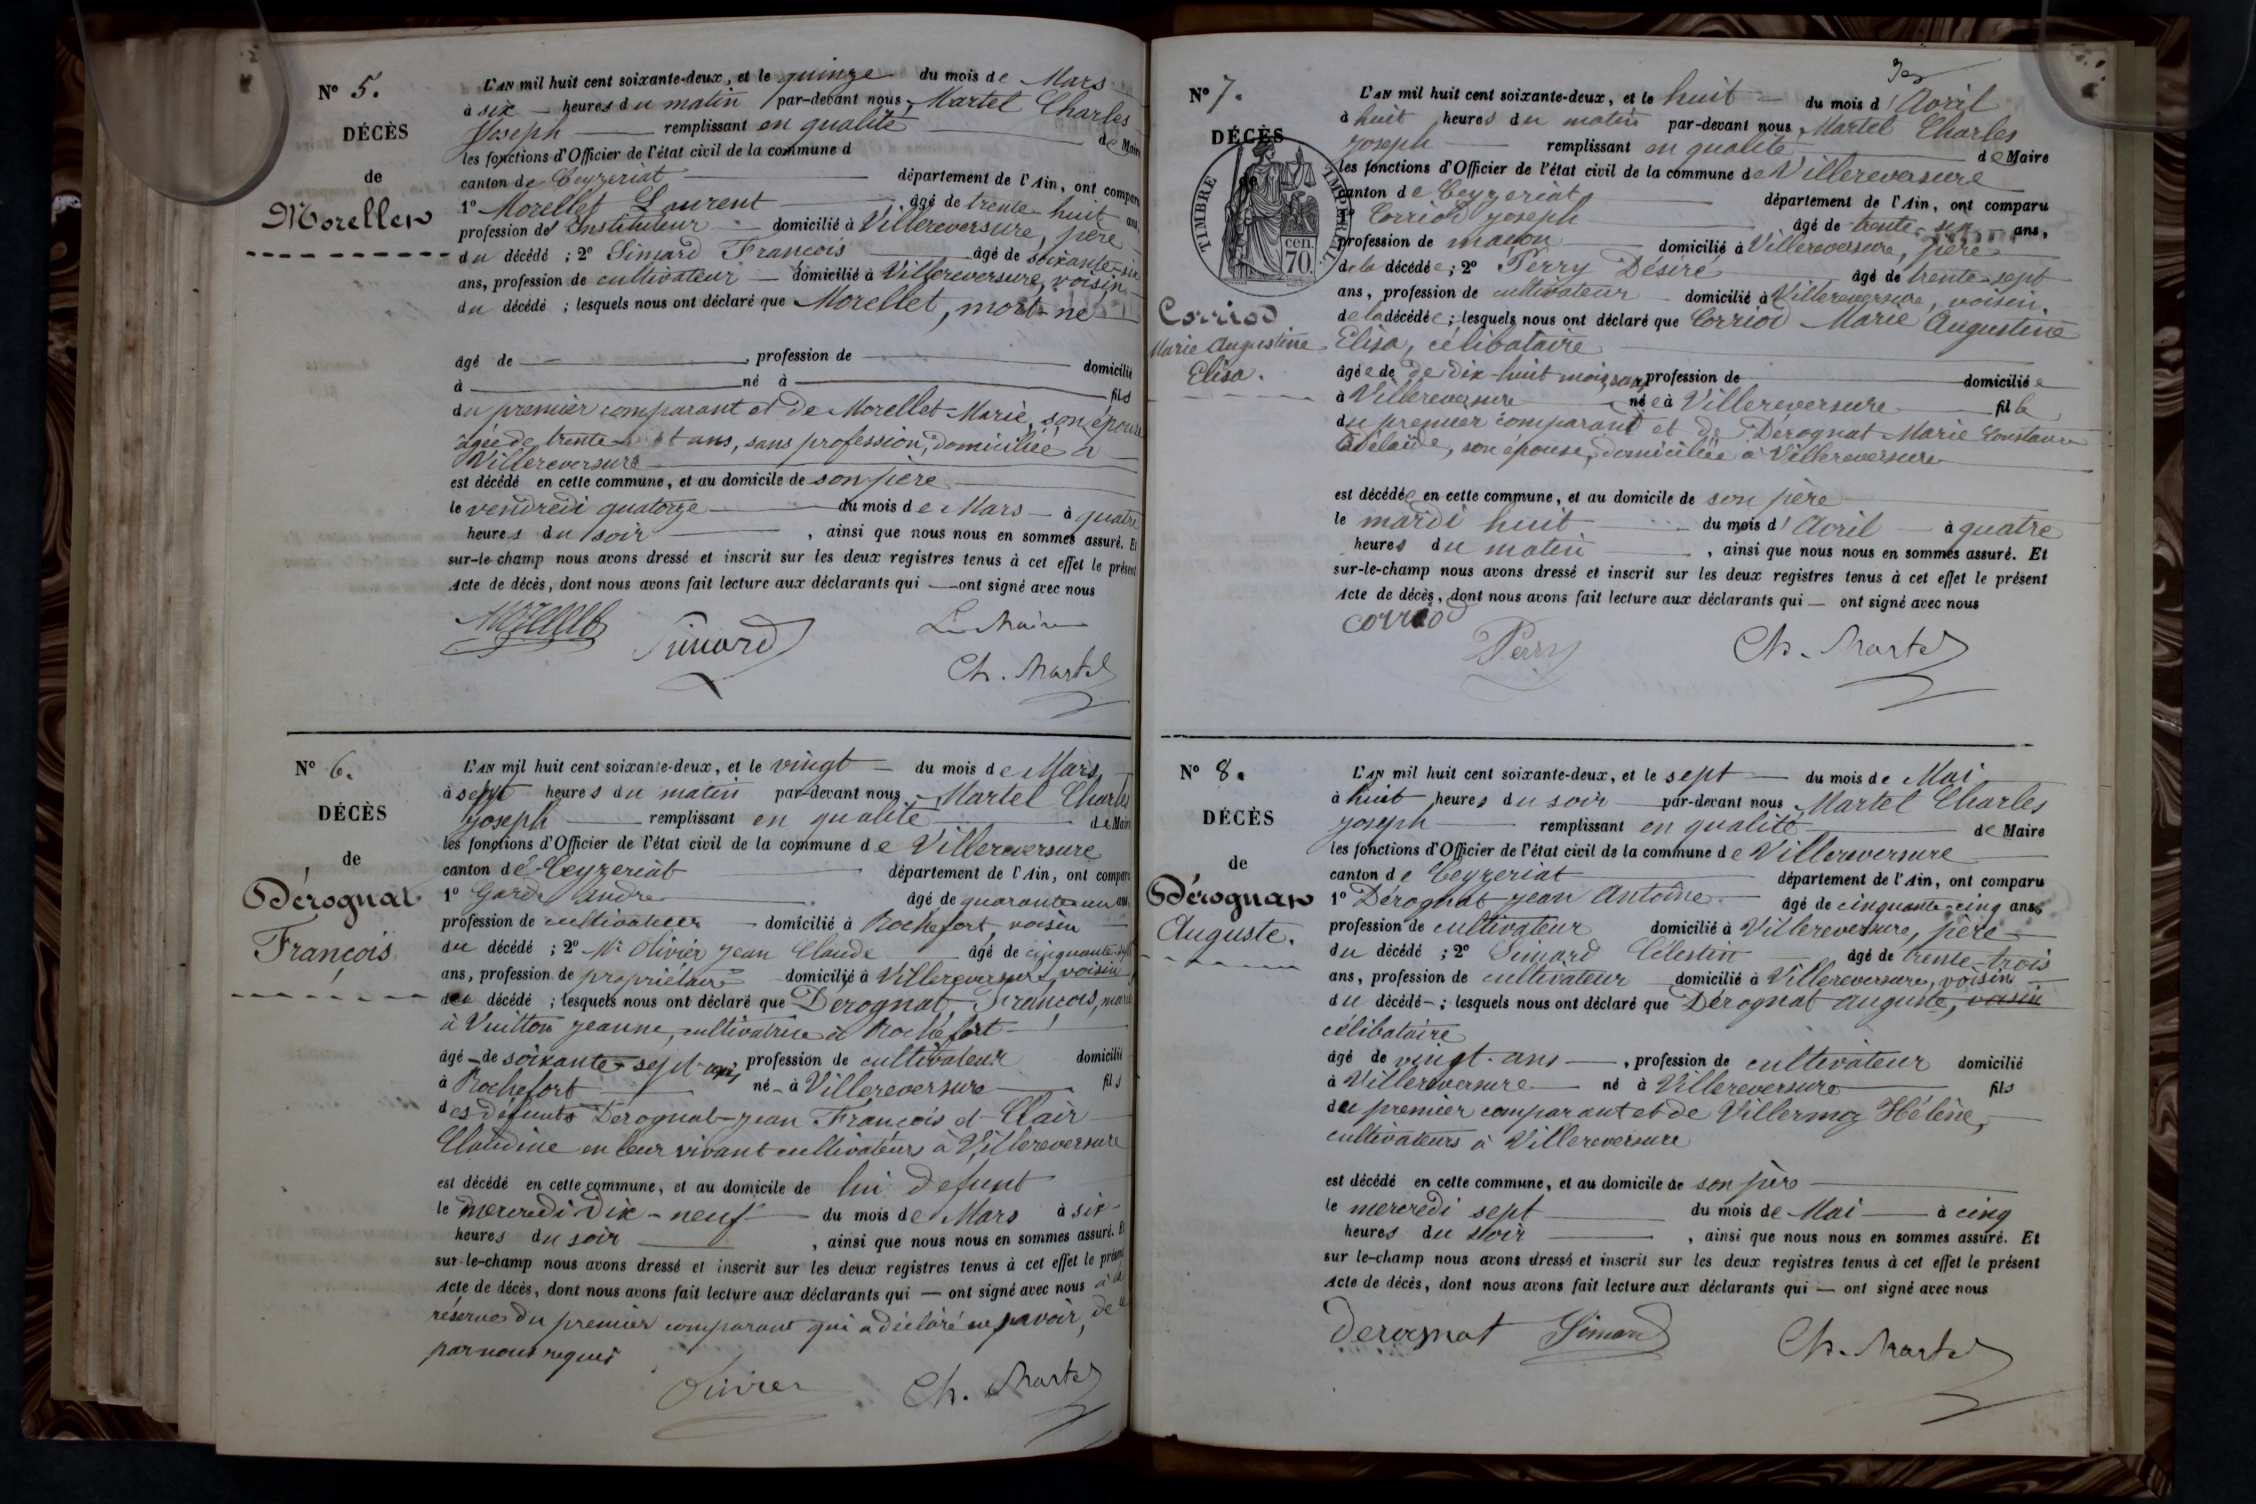 Nº 5.
DÉCÈS
de
Morellet
L'AN mil huit cent soixante-deux, et le quinze du mois de Mars
à six heures du matin par-devant nous Martel Charles
Joseph remplissant en qualité de Maire
les fonctions d'Officier de l'état civil de la commune d
canton de Ceyzeriat département de l'Ain, ont comparu
1º Morellet Laurent, âgé de trente huit ans,
profession d'Instituteur domicilié à Villereversure, père
du décédé ; 2º Simard François âgé de soixante-six
ans, profession de cultivateur domicilié à Villereversure, voisin
du décédé ; lesquels nous ont déclaré que Morellet, mort-né
âgé de , profession de domicilié
à né à fils
du premier comparant et de Morellet Marie, son épouse
âgée de trente ans, sans profession, domiciliée à
Villereversure
est décédé en cette commune, et au domicile de son père
le vendredi quatorze du mois de Mars à quatre
heures du soir , ainsi que nous nous en sommes assuré. Et
sur-le-champ nous avons dressé et inscrit sur les deux registres tenus à cet effet le présent
Acte de décès, dont nous avons fait lecture aux déclarants qui — ont signé avec nous
Morellet Simard Le Maire
Ch. Martel
Nº 6.
DÉCÈS
de
Dérognat
François
L'AN mil huit cent soixante-deux, et le vingt du mois de Mars
à sept heures du matin par-devant nous Martel Charles
Joseph remplissant en qualité de Maire
les fonctions d'Officier de l'état civil de la commune de Villereversure
canton de Ceyzeriat département de l'Ain, ont comparu
1º Garde andré âgé de quarante un ans
profession de cultivateur domicilié à Rochefort, voisin
du décédé ; 2º Mr Olivier Jean Claude âgé de cinquante-
ans, profession de propriétaire domicilié à Villereversure, voisin
du décédé ; lesquels nous ont déclaré que Dérognat François, marié
à Vuitton Jeanne, cultivatrice à Rochefort
âgé de soixante-sept ans, profession de cultivateur domicilié
à Rochefort né à Villereversure fils
des défunts Dérognat Jean François et Clair
Claudine en leur vivant cultivateurs à Villereversure
est décédé en cette commune, et au domicile de lui défunt
le mercredi dix-neuf du mois de Mars à six
heures du soir , ainsi que nous nous en sommes assuré. Et
sur-le-champ nous avons dressé et inscrit sur les deux registres tenus à cet effet le présent
Acte de décès, dont nous avons fait lecture aux déclarants qui — ont signé avec nous à la
réserve du premier comparant qui a déclaré ne savoir, de ce
par nous requis
Olivier Ch. Martel
Nº 7.
DÉCÈS
TIMBRE IMPÉRIAL
70 cen.
Corriod
Marie Augustine
Elisa.
L'AN mil huit cent soixante-deux, et le huit du mois d'Avril
à huit heures du matin par-devant nous Martel Charles
Joseph remplissant en qualité de Maire
les fonctions d'Officier de l'état civil de la commune de Villereversure
canton de Ceyzeriat département de l'Ain, ont comparu
1º Corriod Joseph âgé de trente-six ans,
profession de maçon domicilié à Villereversure, père
de la décédée ; 2º Perry Désiré âgé de trente-sept
ans, profession de cultivateur domicilié à Villereversure, voisin.
de la décédée ; lesquels nous ont déclaré que Corriod Marie Augustine
Elisa, célibataire
âgée de de dix-huit mois, sans profession de domiciliée
à Villereversure née à Villereversure fille
du premier comparant et de Dérognat Marie Constance
Adélaïde, son épouse, domiciliée à Villereversure
est décédée en cette commune, et au domicile de son père
le mardi huit du mois d'Avril à quatre
heures du matin , ainsi que nous nous en sommes assuré. Et
sur-le-champ nous avons dressé et inscrit sur les deux registres tenus à cet effet le présent
Acte de décès, dont nous avons fait lecture aux déclarants qui — ont signé avec nous
corriod Perry Ch. Martel
Nº 8.
DÉCÈS
de
Dérognat
Auguste.
L'AN mil huit cent soixante-deux, et le sept du mois de Mai
à huit heures du soir par-devant nous Martel Charles
Joseph remplissant en qualité de Maire
les fonctions d'Officier de l'état civil de la commune de Villereversure
canton de Ceyzeriat département de l'Ain, ont comparu
1º Dérognat Jean Antoine âgé de cinquante-cinq ans,
profession de cultivateur domicilié à Villereversure, père
du décédé ; 2º Simard Célestin âgé de trente-trois
ans, profession de cultivateur domicilié à Villereversure, voisin
du décédé ; lesquels nous ont déclaré que Dérognat auguste, voisin
célibataire
âgé de vingt ans, profession de cultivateur domicilié
à Villereversure né à Villereversure fils
du premier comparant et de Villermoz Hélène,
cultivateurs à Villereversure
est décédé en cette commune, et au domicile de son père
le mercredi sept du mois de Mai à cinq
heures du soir , ainsi que nous nous en sommes assuré. Et
sur le-champ nous avons dressé et inscrit sur les deux registres tenus à cet effet le présent
Acte de décès, dont nous avons fait lecture aux déclarants qui — ont signé avec nous
Derognat Simard Ch. Martel